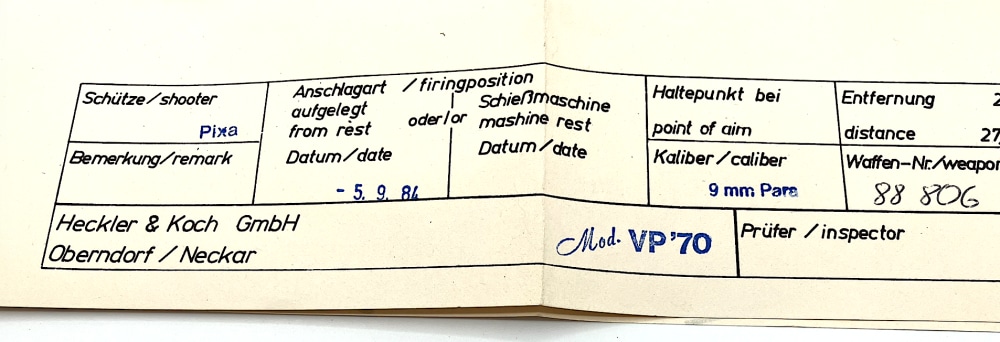 Schütze/shooter
Pixa
Anschlagart /firingposition
aufgelegt
from rest
oder/or
Schießmaschine
mashine rest
Haltepunkt bei
point of aim
Entfernung 2
distance 27,
Bemerkung/remark
Datum/date
- 5. 9. 84
Datum/date
Kaliber/caliber
9 mm Para
Waffen-Nr./weapon
88 806
Heckler & Koch GmbH
Oberndorf/Neckar
Mod. VP'70
Prüfer/inspector